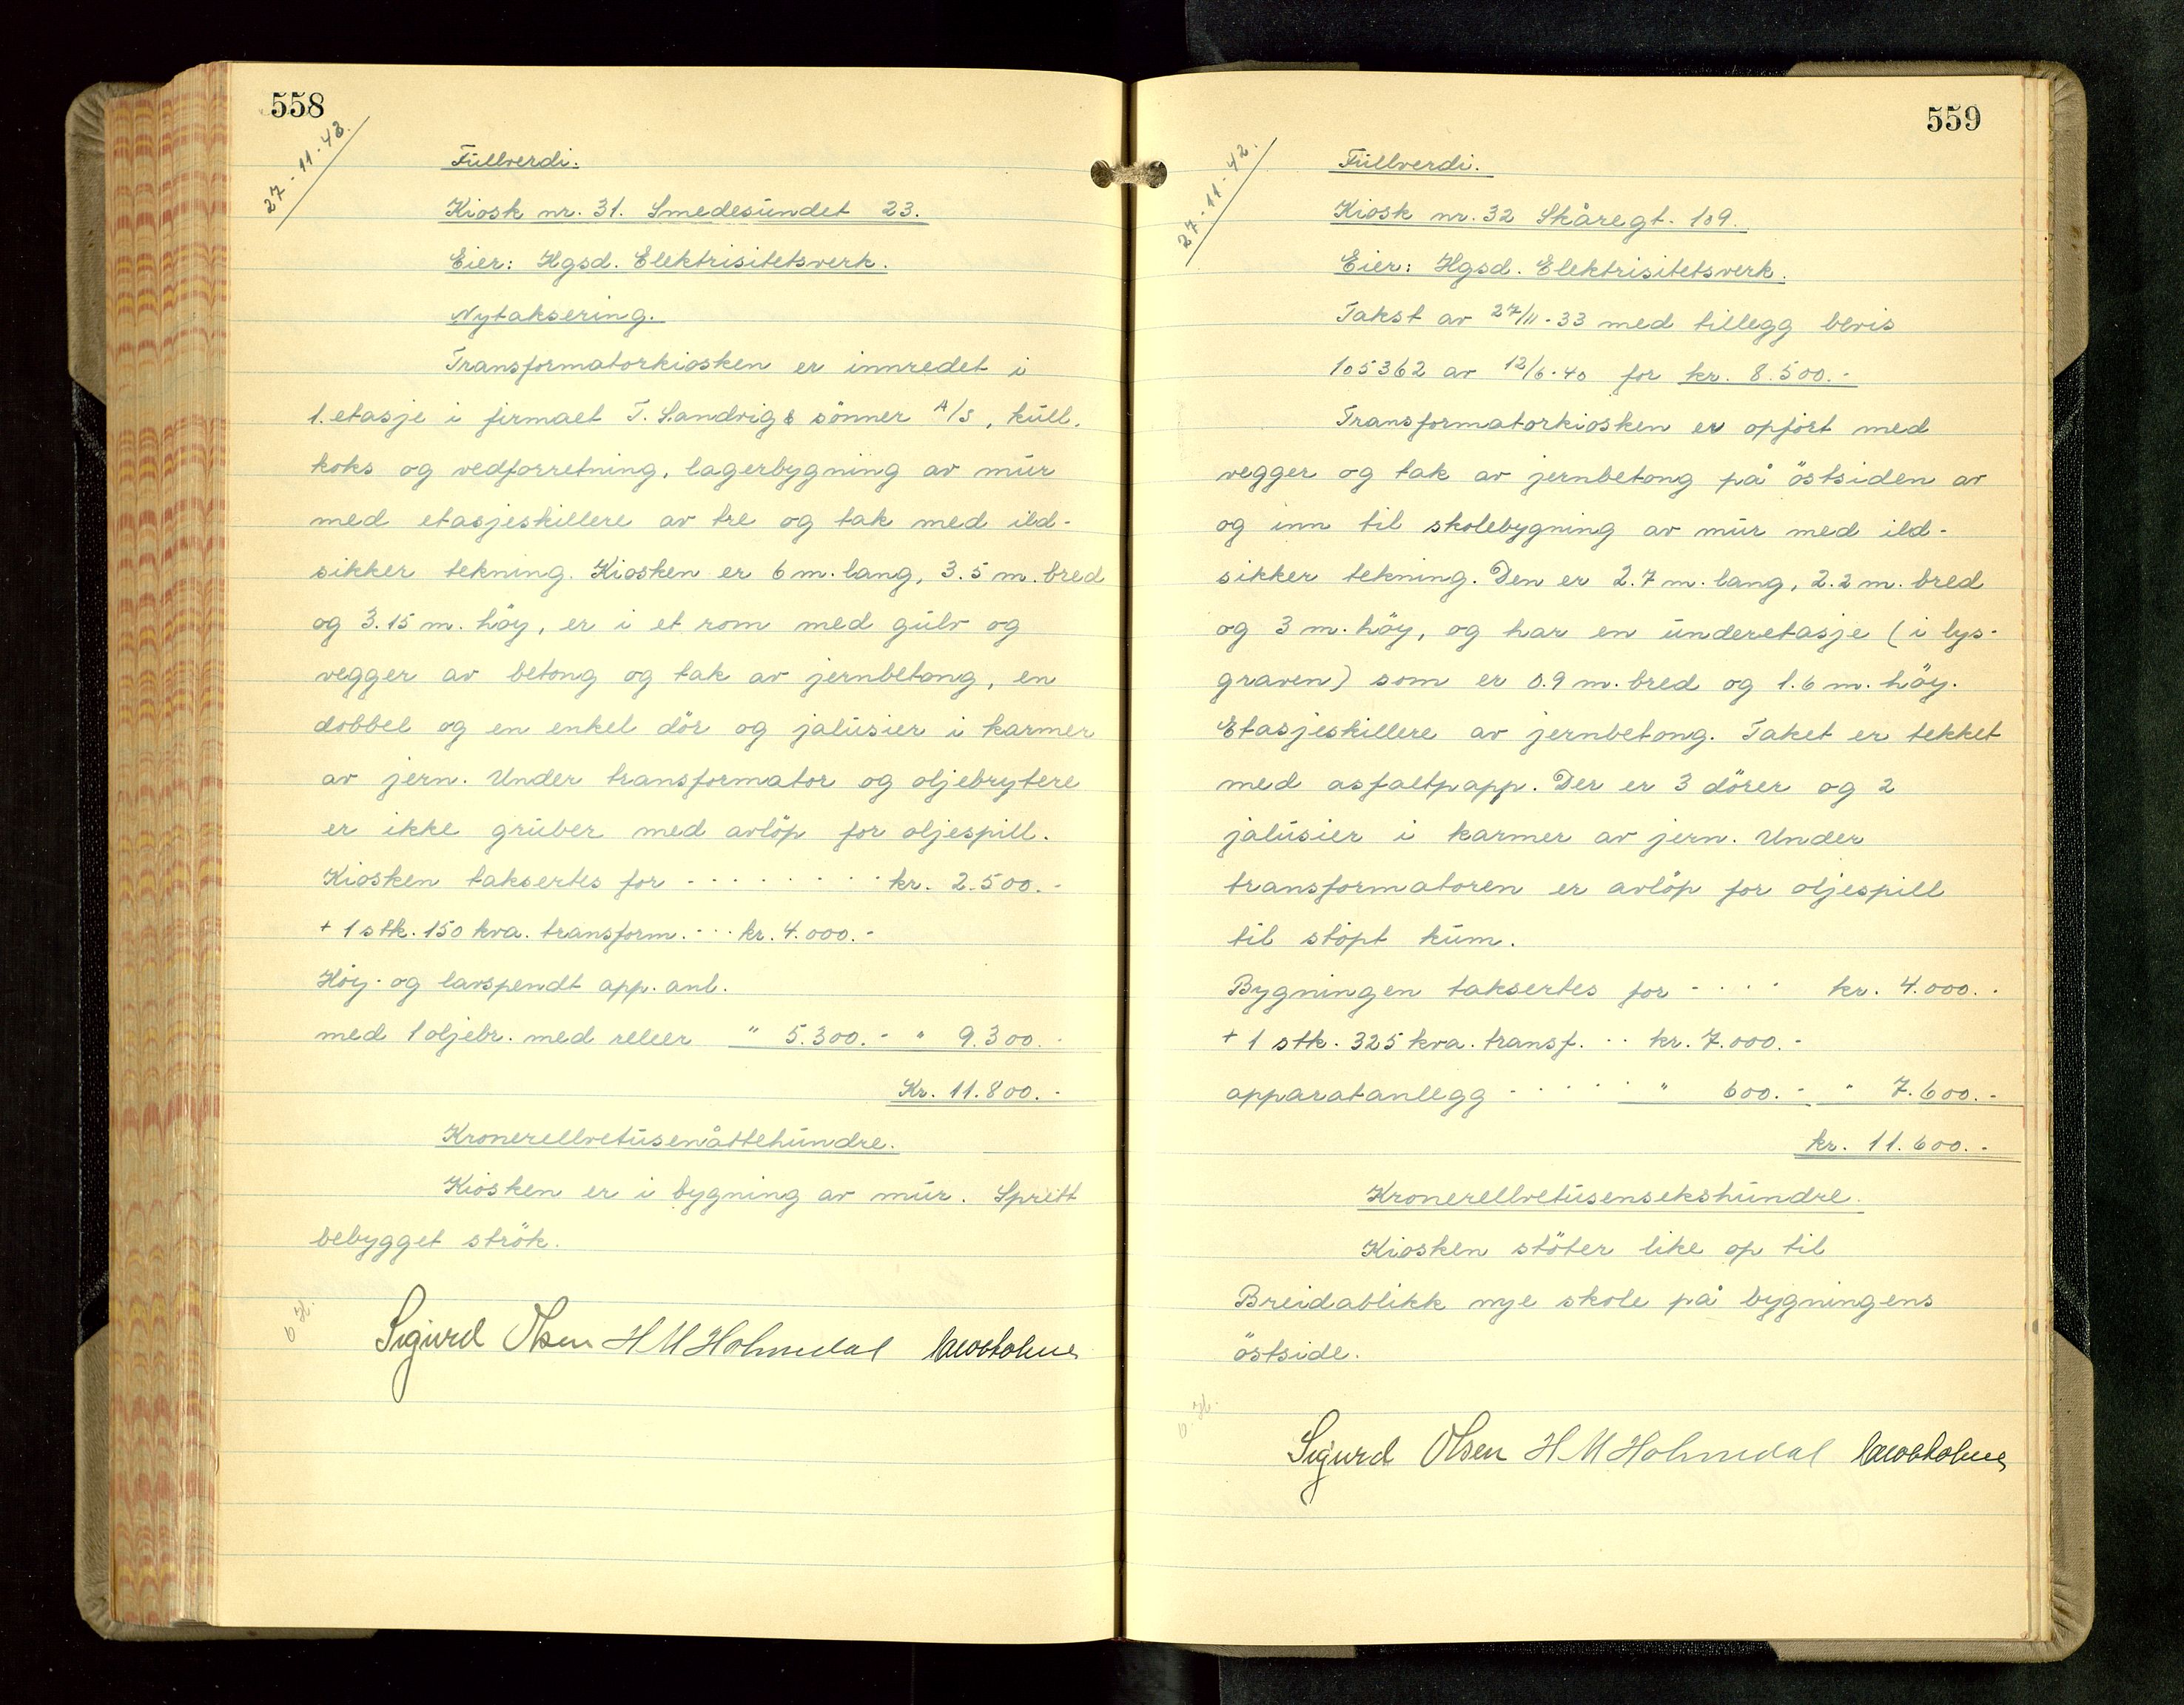 558
27-11-42.
Fullverdi.
Kiosk nr. 31. Smedesundet 23.
Eier: Hgsd. Elektrisitetsverk.
Nytaksering.
Transformatorkiosken er innredet i
1. etasje i firmaet T. Sandvig & sönner A/S, kull.
koks og vedforretning, lagerbygning av mur
med etasjeskillere av tre og tak med ild-
sikker tekning. Kiosken er 6 m. lang, 3.5 m. bred
og 3.15 m. höy, er i et rom med gulv og
vegger av betong og tak av jernbetong, en
dobbel og en enkel dör og jalusier i karmer
av jern. Under transformator og oljebrytere
er ikke gruber med avlöp for oljespill.
Kiosken taksertes for - . . . . . . . kr. 2.500.-
+ 1 stk. 150 kva. transform. - . . kr. 4.000.-
Höy- og lavspendt app. anl.
med 1 oljebr. med releer " 5.300.- " 9.300.-
Kr. 11.800.-
Kronerellvetusenåttehundre.
Kiosken er i bygning av mur. Spritt
bebygget strök.
O.H.
Sigurd Olsen H M Holmedal
559
27-11-42.
Fullverdi.
Kiosk nr. 32 Skåregt. 109.
Eier: Hgsd. Elektrisitetsverk.
Takst av 27/11-33 med tillegg bevis
105362 av 12/6-40 for kr. 8.500.-
Transformatorkiosken er opfört med
vegger og tak av jernbetong på östsiden av
og inn til skolebygning av mur med ild-
sikker tekning. Den er 2.7 m. lang, 2.2 m. bred
og 3 m. höy, og har en underetasje (i lys-
graven) som er 0.9 m. bred og 1.6 m. höy.
Etasjeskillere av jernbetong. Taket er tekket
med asfaltpapp. Der er 3 dörer og 2
jalusier i karmer av jern. Under
transformatoren er avlöp for oljespill
til stöpt kum.
Bygningen taksertes for - . . . kr. 4.000.-
+ 1 stk. 325 kva. transf. . . kr. 7.000.-
apparatanlegg - . . . . . " 600.- " 7.600.-
kr. 11.600.-
Kronerellvetusensekshundre.
Kiosken stöter like op til
Breidablikk nye skole på bygningens
östside.
O.H.
Sigurd Olsen H M Holmedal